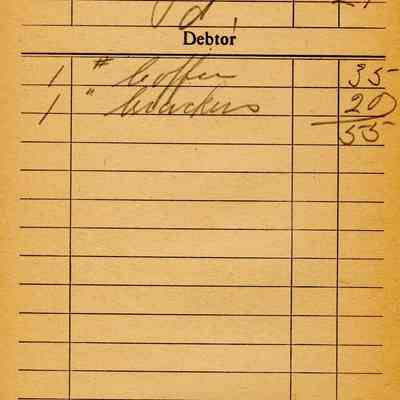 Debtor
1 # Coffee 35
1 " Crackers 20
55